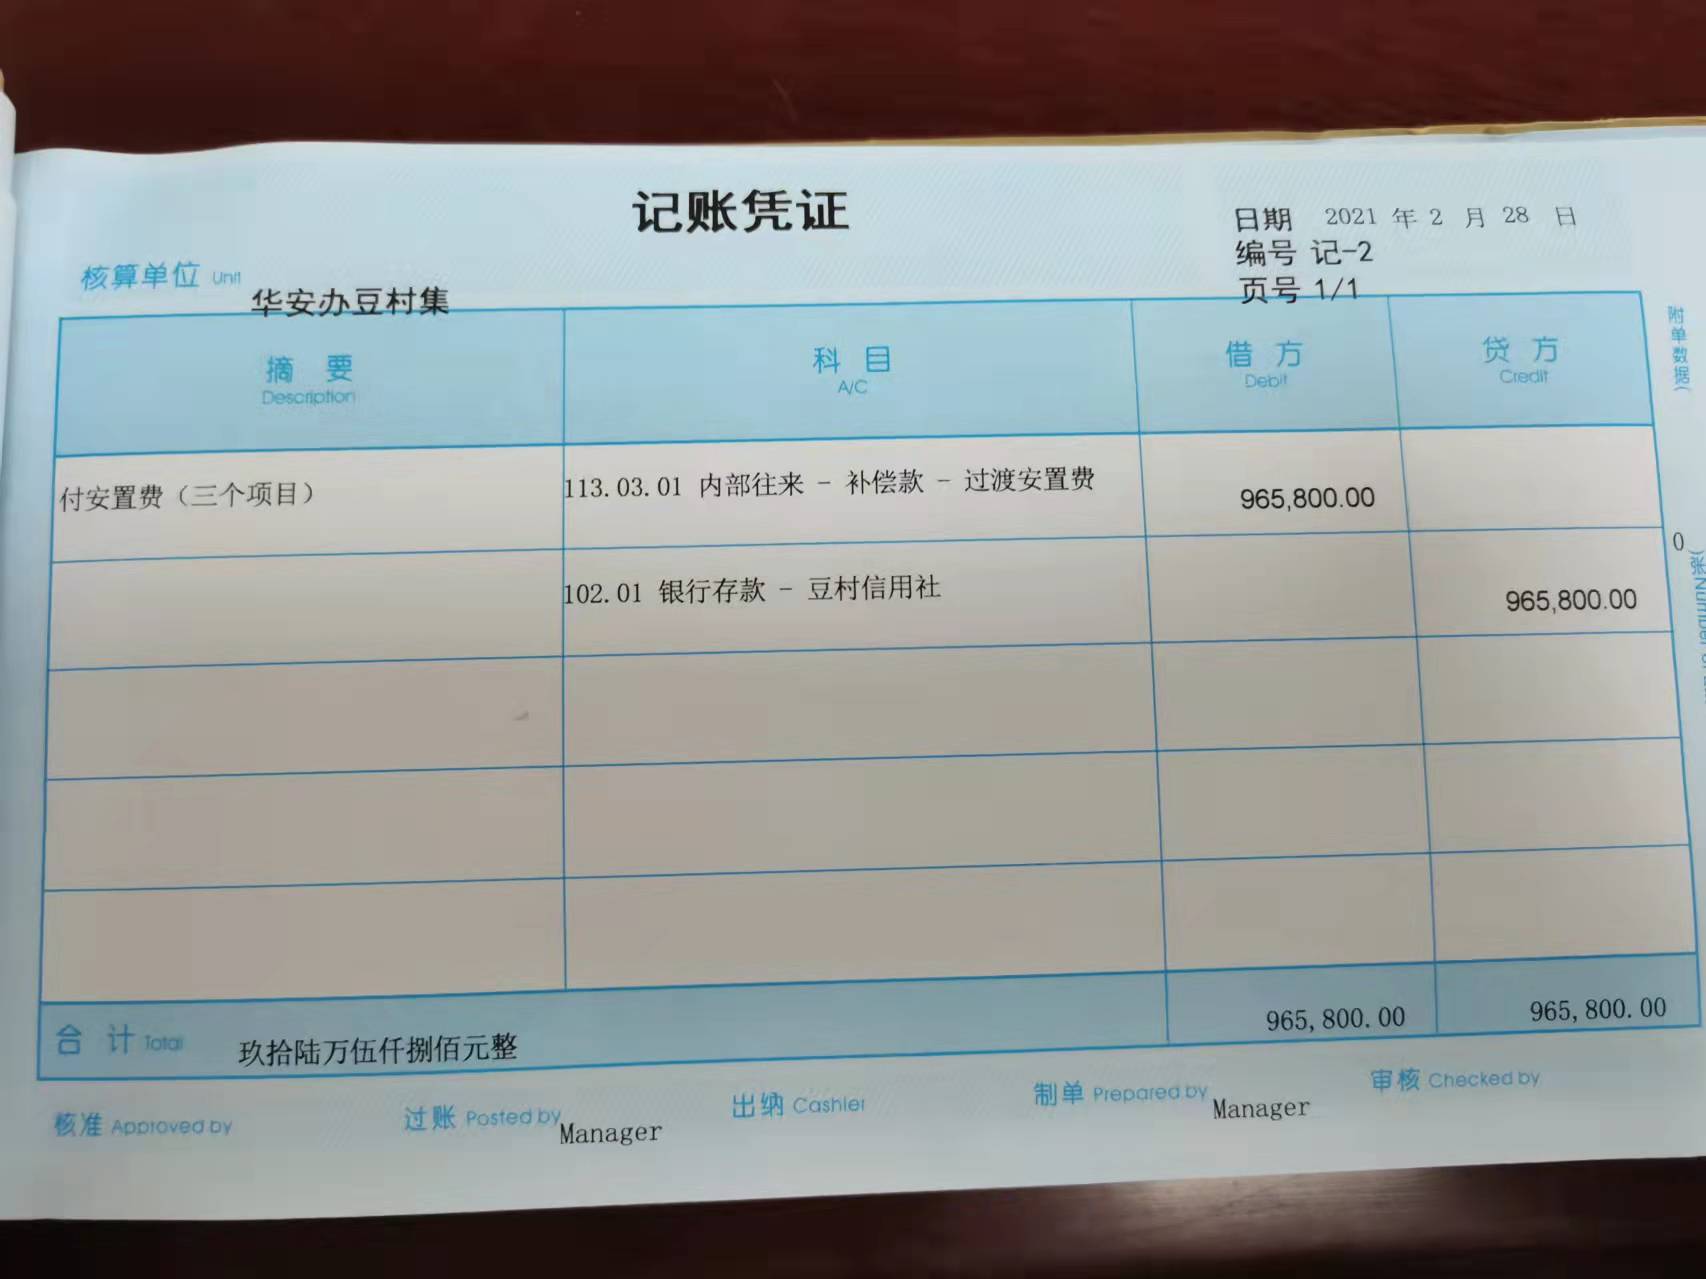 记账凭证
日期 2021 年 2 月 28 日
编号 记-2
页号 1/1
核算单位 Unit 华安办豆村集
摘 要 科 目 借 方 贷 方
Description A/C Debit Credit
附单数据(
付安置费（三个项目） 113.03.01 内部往来 - 补偿款 - 过渡安置费 965,800.00
0
张)
102.01 银行存款 - 豆村信用社 965,800.00
合 计 Total 玖拾陆万伍仟捌佰元整 965,800.00 965,800.00
核准 Approved by 过账 Posted by Manager 出纳 Cashier 制单 Prepared by Manager 审核 Checked by